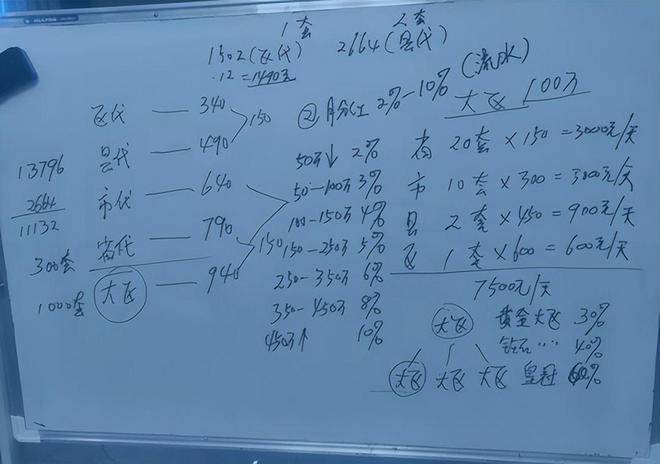 1套 2套
1502(飞代) 2664(县代)
.12=14490万
(流水)
大飞 100万
飞代 — 340
150
县代 — 490
市代 — 640
省代 — 790
150
大飞 — 940
13796
2664
11132
300套
1000套
② 月分红 2%-10%
50万↓ 2%
50-100万 3%
100-150万 4%
150-250万 5%
250-350万 6%
350-450万 8%
450万↑ 10%
省 20套×150=3000元/天
市 10套×300=3000元/天
县 2套×450=900元/天
飞 1套×600=600元/天
7500元/天
大飞 黄金大飞 30%
钻石 ···· 40%
大飞 大飞 大飞 皇冠 %